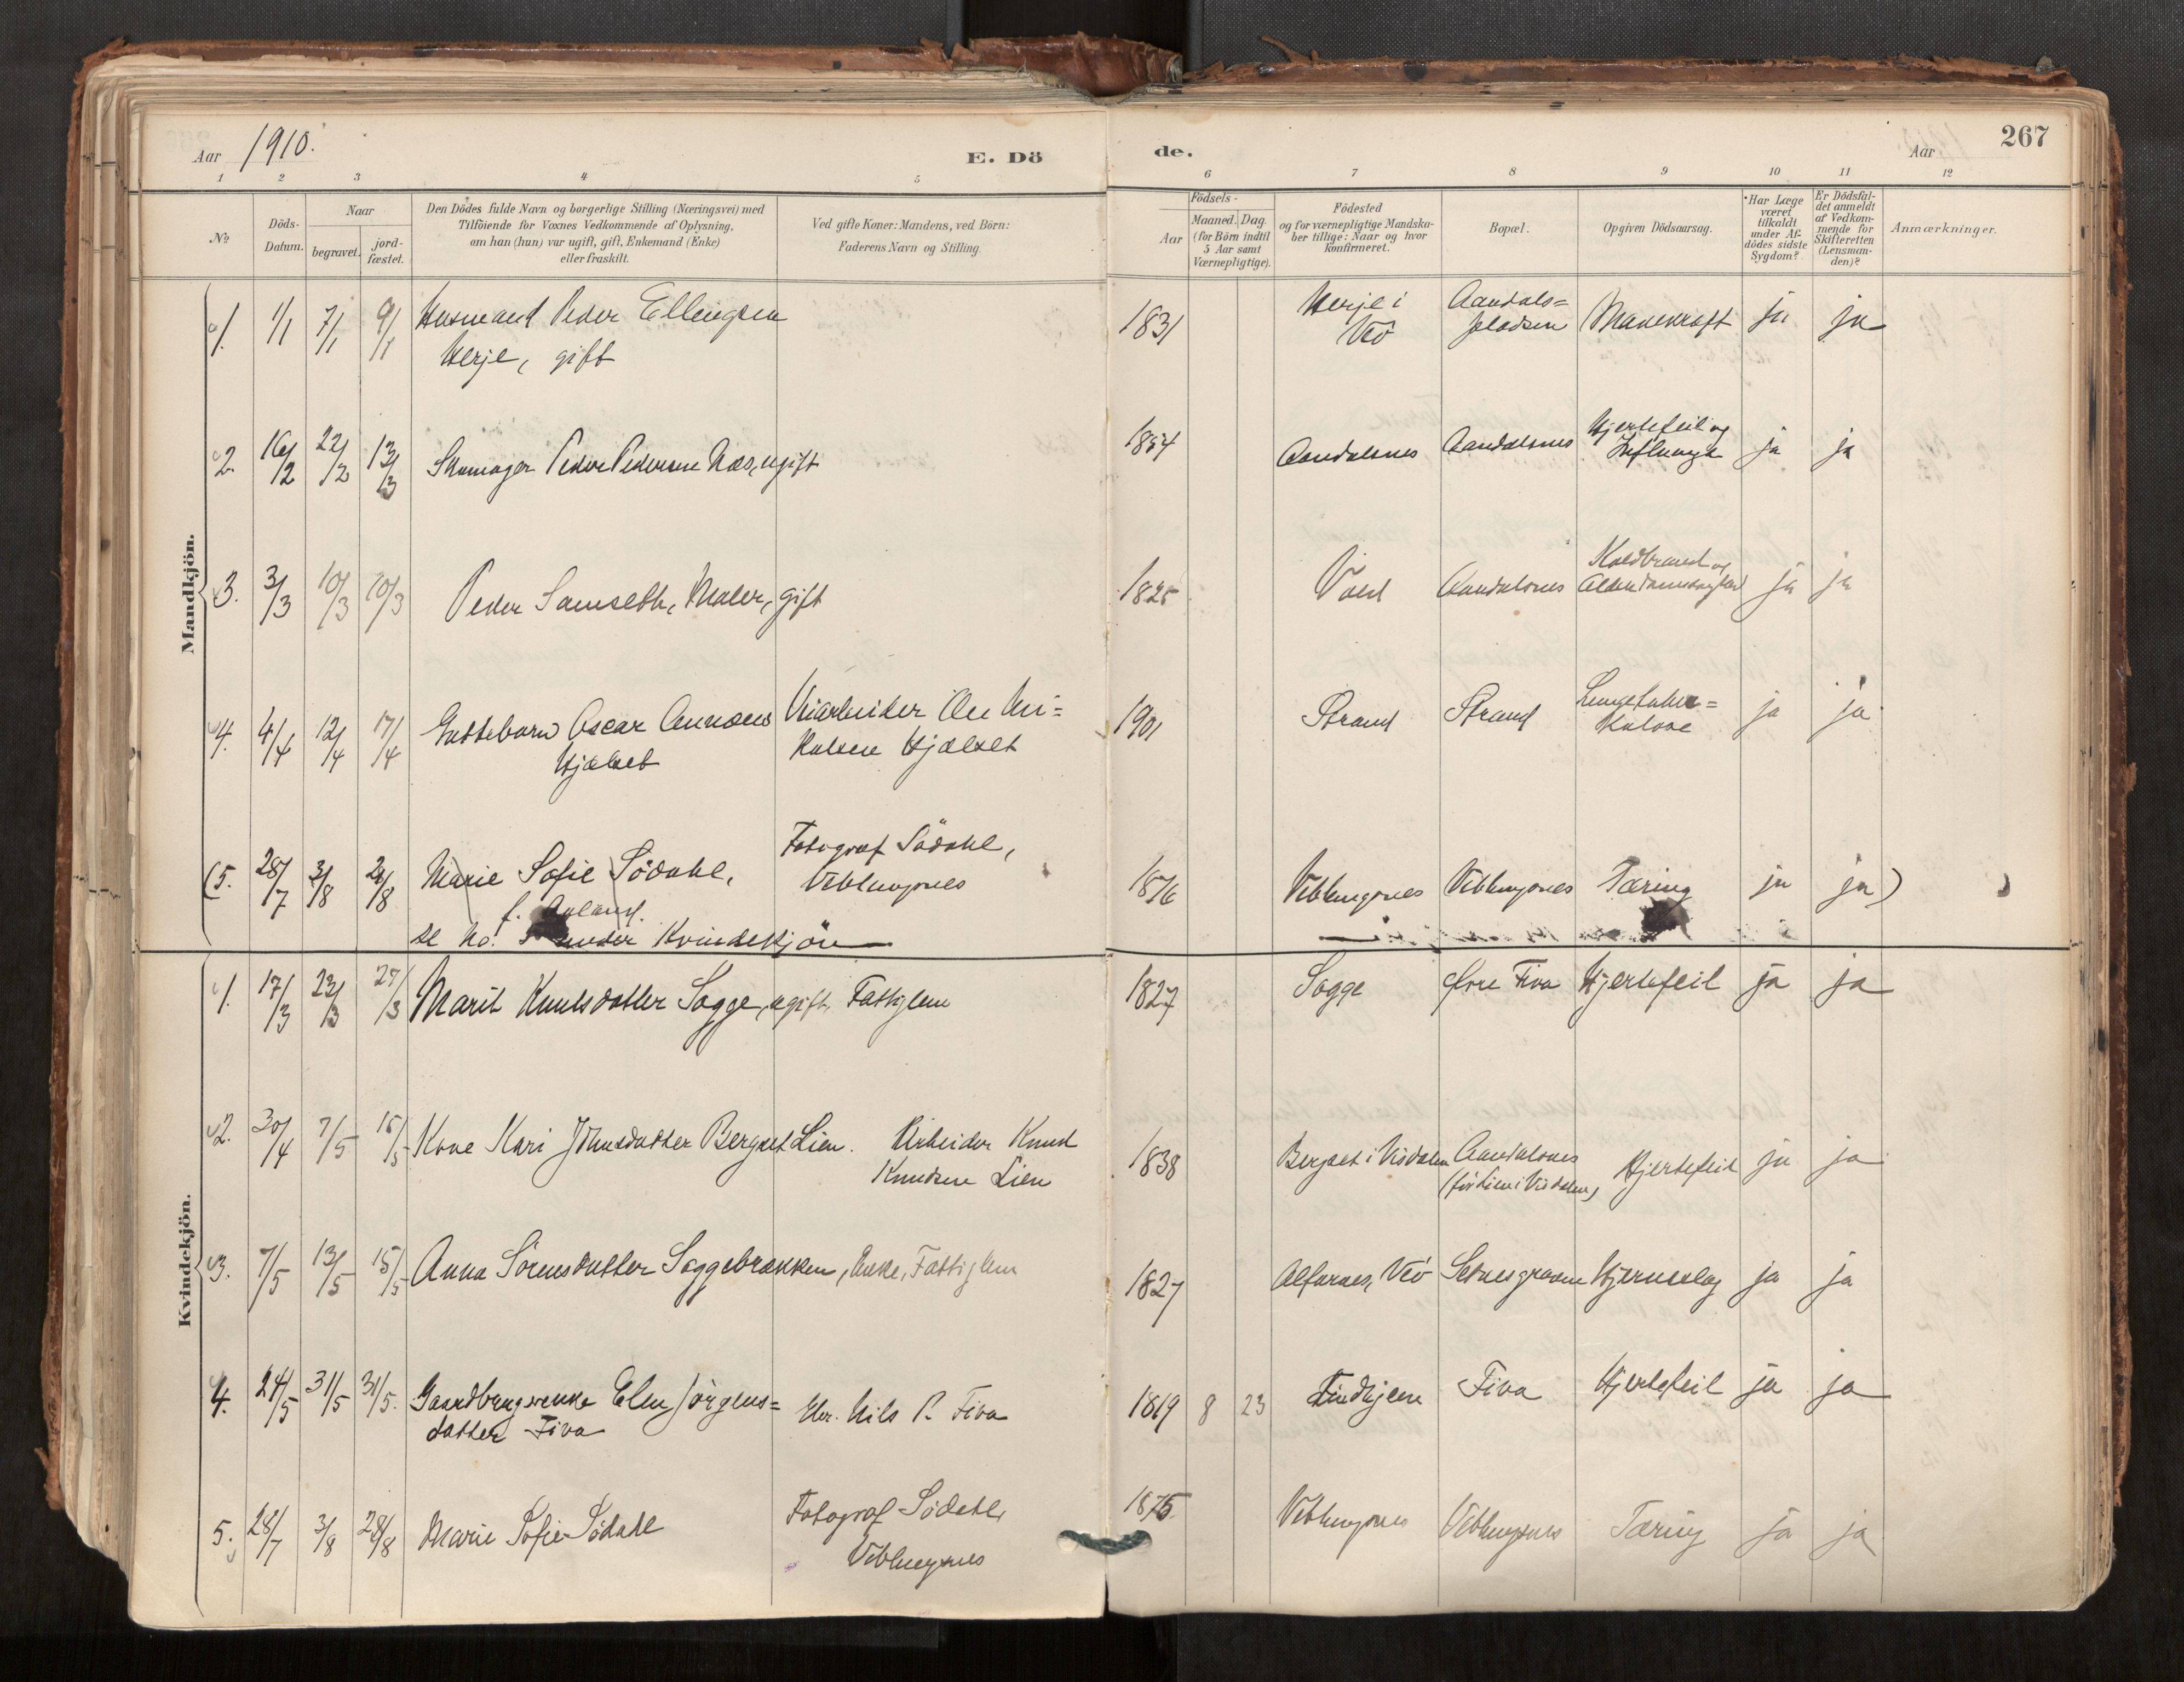 267
Aar 1910.
E. Dö
de.
Aar
1 2 3 4 5 6 7 8 9 10 11 12
No.
Döds-Datum.
Naar
begravet.
jord-fæstet.
Den Dödes fulde Navn og borgerlige Stilling (Næringsvei) med
Tilföiende for Voxnes Vedkommende af Oplysning,
om han (hun) var ugift, gift, Enkemand (Enke)
eller fraskilt.
Ved gifte Koner: Mandens, ved Börn:
Faderens Navn og Stilling.
Födsels-
Aar
Maaned. Dag.
(for Börn indtil
5 Aar samt
Værnepligtige).
Födested
og for værnepligtige Mandska-
ber tillige: Naar og hvor
konfirmeret.
Bopæl.
Opgiven Dödsaarsag.
Har Læge
været
tilkaldt
under Af-
dödes sidste
Sygdom?
Er Dödsfal-
det anmeldt
af Vedkom-
mende for
Skifteretten
(Lensman-
den)?
Anmærkninger.
Mandkjön.
1. 1/1 7/1 9/1 Husmand Peder Ellingsen
Herje, gift
1831 Herje i
Veö
Aandals=
pladsen
Mavekræft ja ja
2. 16/2 22/2 13/3 Skomager Peder Pedersen Næs, ugift
1854 Aandalsnes Aandalsnes Hjertefeil og
Influenza ja ja
3. 3/3 10/3 10/3 Peder Samseth, Maler, gift
1825 Vold Aandalsnes Koldbrand og
ja ja
4. 4/4 12/4 17/4 Guttebarn Oscar Annæus
Hjælset
Veiarbeider Ole Ni=
kolsen Hjælset
1901 Strand Strand Lungetuber=
kulose ja ja
(5. 28/7 3/8 28/8 Marie Sofie Södahl,
f. Aaland.
Fotograf Södahl,
Veblungsnes
1876 Veblungsnes Veblungsnes Tæring ja ja)
Se No. 5 under Kvindekjön
Kvindekjön.
1. 17/3 23/3 27/3 Marit Knutsdatter Sogge, ugift, Fattiglem
1827 Sogge Øvre Fiva Hjertefeil ja ja
2. 30/4 7/5 15/5 Kone Kari Johnsdatter Bergset Lien. Arbeider Knud
Knudsen Lien
1838 Bergset i Visdalen Aandalsnes
(för Lien i Visdalen)
Hjertefeil ja ja
3. 7/5 13/5 15/5 Anna Sörensdatter Soggebrækken, Enke, Fattiglem
1827 Alfarnes, Veö Setnesgroven Hjerneslag ja ja
4. 24/5 31/5 31/5. Gaardbrugerenke Elen Jörgens=
datter Fiva
Nils P. Fiva
1819 8 23 Fiva Hjertefeil ja ja
5. 28/7 3/8 28/8 Marie Sofie Södahl
Fotograf Södahl,
Veblungsnes
1875 Veblungsnes Veblungsnes Tæring ja ja